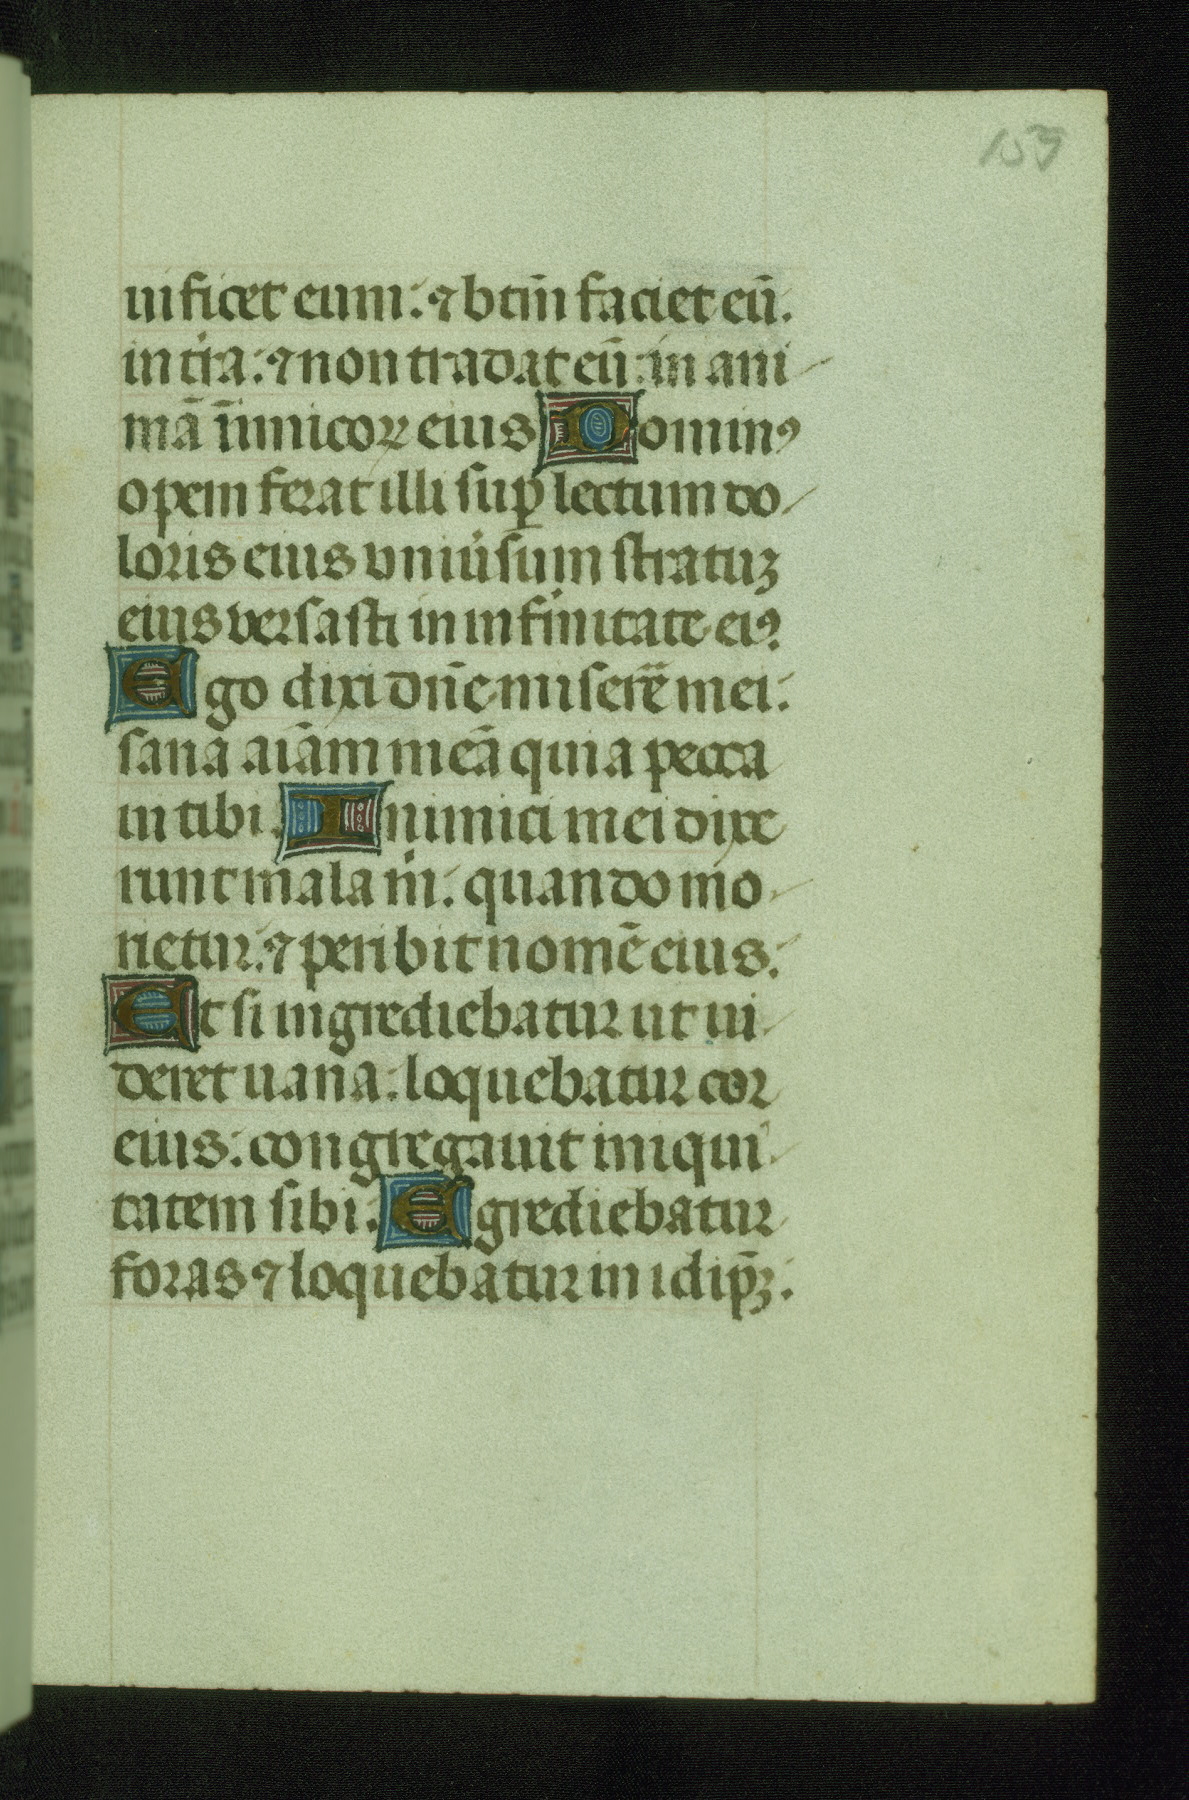 159
uificet eum: ⁊ btm̄ faciet eū.
in tr̄a: ⁊ non tradat eū: in ani
mā inimicoꝝ eius Dominꝰ
opem ferat illi suꝑ lectum do
loris eius vniūsum stratuꝫ
eius versasti in infirmitate eiꝰ.
Ego dixi dn̄e miserē mei:
sana aīam meā quia pecca
ui tibi. Inimici mei dixe
runt mala m̄: quando mo
rietur: ⁊ peribit nomē eius:
Et si ingrediebatur ut ui
deret uana: loquebatur cor
eius: congregauit iniqui
tatem sibi. Egrediebatur
foras ⁊ loquebatur in idip̄ꝫ.